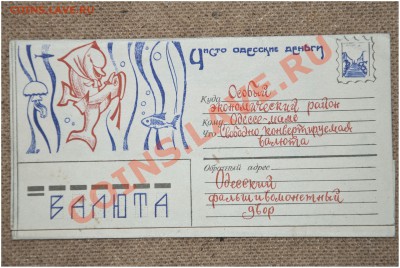 Чисто одесские деньги
Куда Особый
экономический район
Кому Одессе-маме
Что Свободно конвертируемая
валюта
Обратный адрес
Одесский
фальшивомонетный
двор
ВАЛЮТА
COINS.LAVE.RU